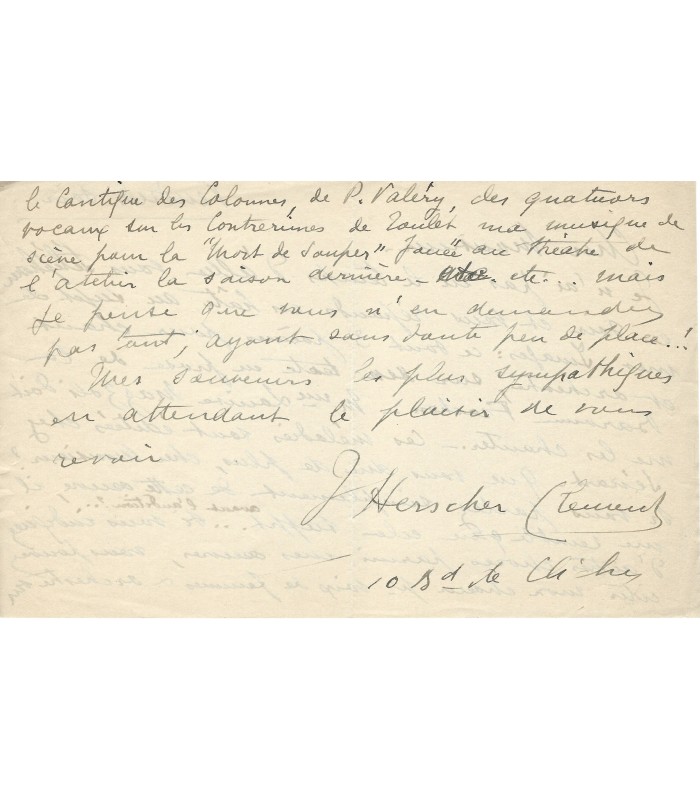 le Cantique des Colonnes, de P. Valéry, des quatuors
vocaux sur les Contrerimes de Toulet ma musique de
scène pour la "Mort de Souper" Jouée au théâtre de
l'atelier la saison dernière - etc... mais
Je pense que vous n'en demandez
pas tant, ayant sans doute peu de place..!
Mes souvenirs les plus sympathiques
en attendant le plaisir de vous
revoir
J Herscher Clement
10 Bd de Clichy